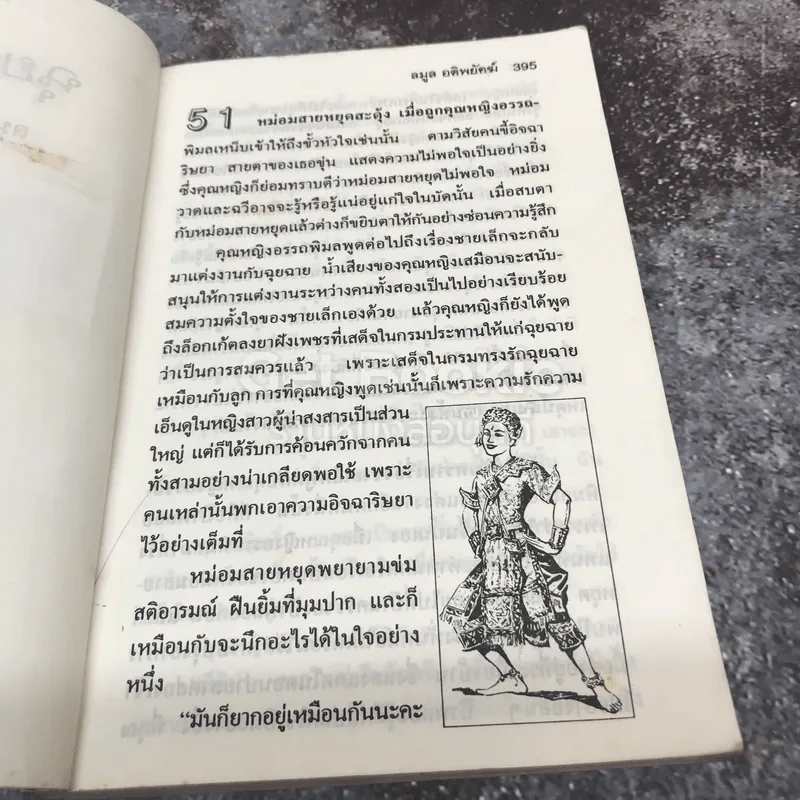 ลมูล อติพยัคฆ์ 395
51 หม่อมสายหยุดสะดุ้ง เมื่อถูกคุณหญิงอรรถ-
พิมลเหน็บเข้าให้ถึงขั้วหัวใจเช่นนั้น ตามวิสัยคนขี้อิจฉา
ริษยา สายตาของเธอขุ่น แสดงความไม่พอใจเป็นอย่างยิ่ง
ซึ่งคุณหญิงก็ย่อมทราบดีว่าหม่อมสายหยุดไม่พอใจ หม่อม
วาดและฉวีอาจจะรู้หรือรู้แน่อยู่แก่ใจในบัดนั้น เมื่อสบตา
กับหม่อมสายหยุดแล้วต่างก็ขยิบตาให้กันอย่างซ่อนความรู้สึก
คุณหญิงอรรถพิมลพูดต่อไปถึงเรื่องชายเล็กจะกลับ
มาแต่งงานกับฉุยฉาย น้ำเสียงของคุณหญิงเสมือนจะสนับ-
สนุนให้การแต่งงานระหว่างคนทั้งสองเป็นไปอย่างเรียบร้อย
สมความตั้งใจของชายเล็กเองด้วย แล้วคุณหญิงก็ยังได้พูด
ถึงล็อกเก้ตลงยาฝังเพชรที่เสด็จในกรมประทานให้แก่ฉุยฉาย
ว่าเป็นการสมควรแล้ว เพราะเสด็จในกรมทรงรักฉุยฉาย
เหมือนกับลูก การที่คุณหญิงพูดเช่นนั้นก็เพราะความรักความ
เอ็นดูในหญิงสาวผู้น่าสงสารเป็นส่วน
ใหญ่ แต่ก็ได้รับการค้อนควักจากคน
ทั้งสามอย่างน่าเกลียดพอใช้ เพราะ
คนเหล่านั้นพกเอาความอิจฉาริษยา
ไว้อย่างเต็มที่
หม่อมสายหยุดพยายามข่ม
สติอารมณ์ ฝืนยิ้มที่มุมปาก และก็
เหมือนกับจะนึกอะไรได้ในใจอย่าง
หนึ่ง
“มันก็ยากอยู่เหมือนกันนะคะ